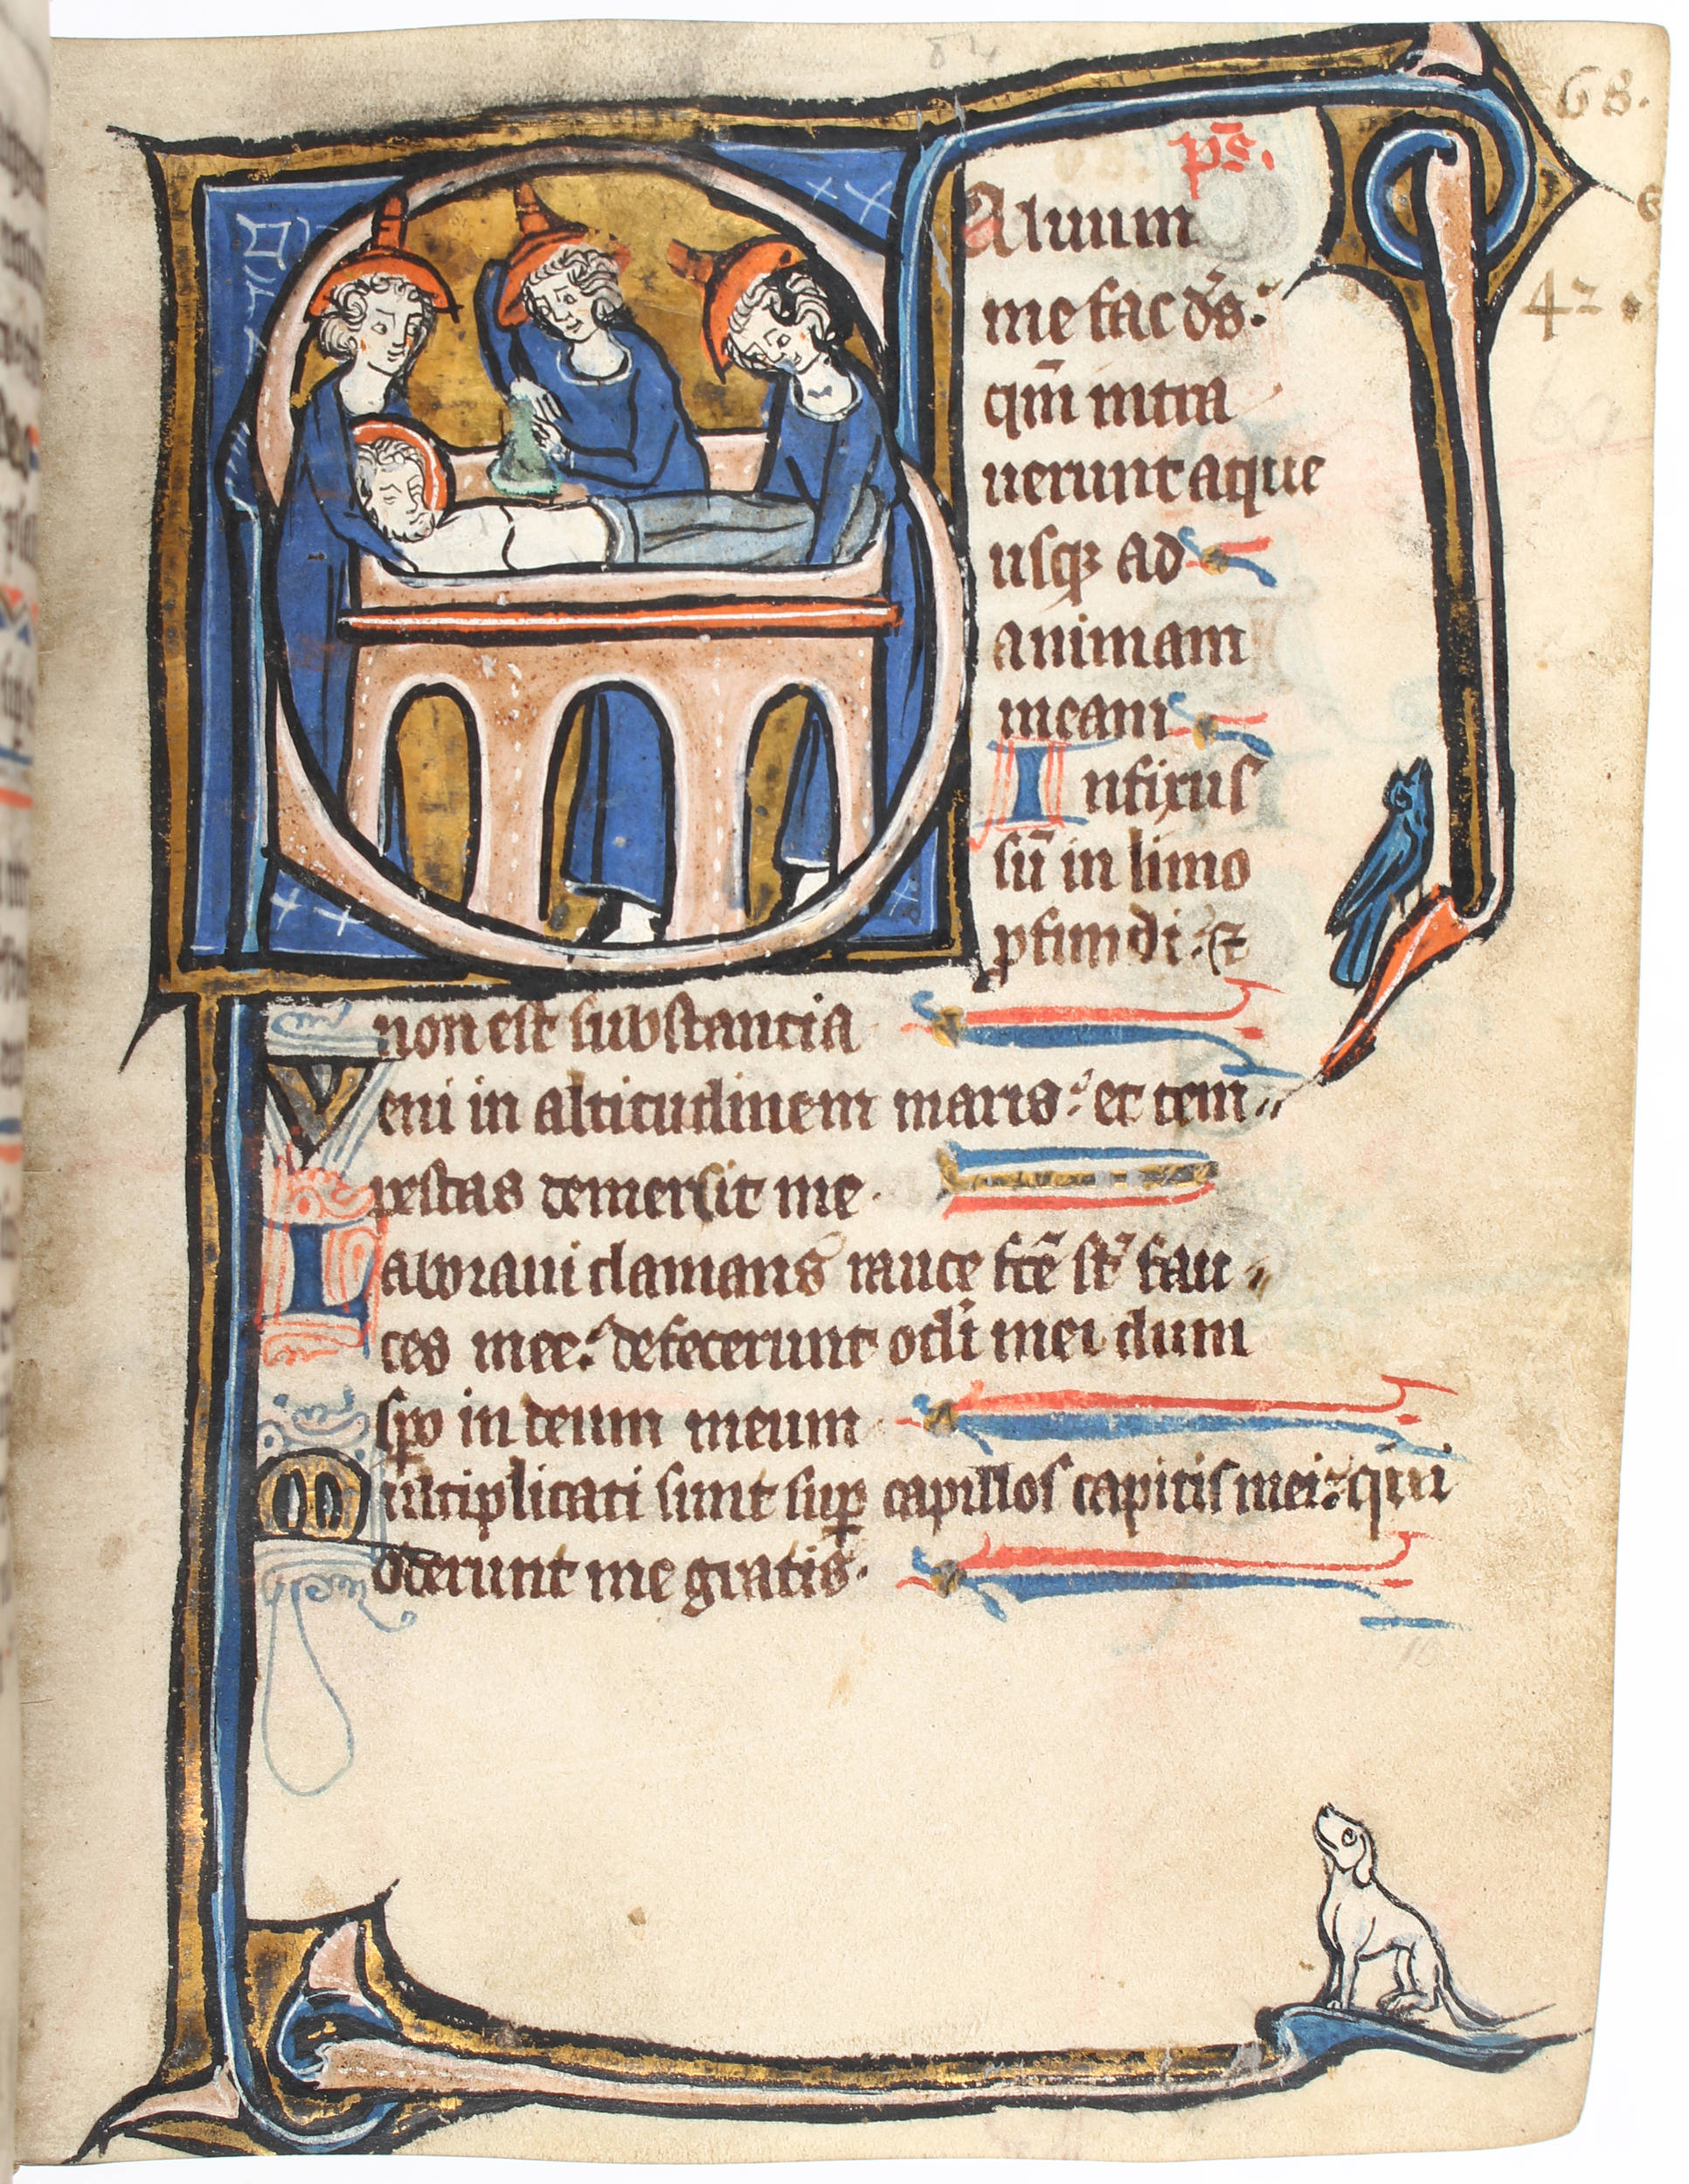 68.
ps̄.
Aluum
me fac ds̄:
qm̄ intra
uerunt aque
usqꝫ ad
animam
meam
Infixus
sū in limo
pfundi: ⁊
non est substantia
Veni in altitudinem maris: et tem
pestas demersit me.
Laboraui clamans rauce fcē st̄ fau
ces mee: defecerunt ocl̄i mei dum
spo in deum meum
Multiplicati sunt suꝑ capillos capitis mei: qui
oderunt me gratis.
42.